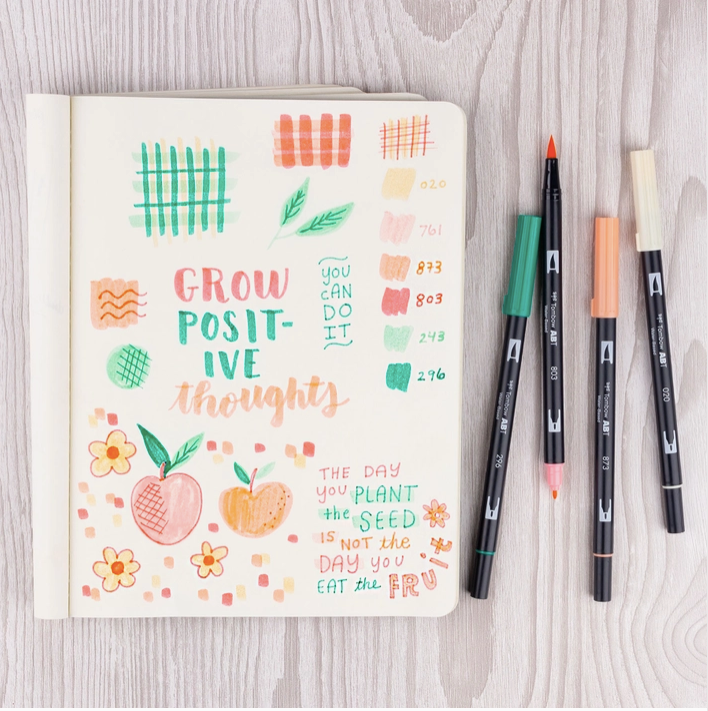 020
761
873
803
243
296
YOU
CAN
DO
IT
GROW
POSIT-
IVE
thoughts
THE DAY
you PLANT
the SEED
IS NOT the
DAY you
EAT the FRUIT
Tombow ABT
296
Tombow ABT
803
Tombow ABT
873
Tombow ABT
020